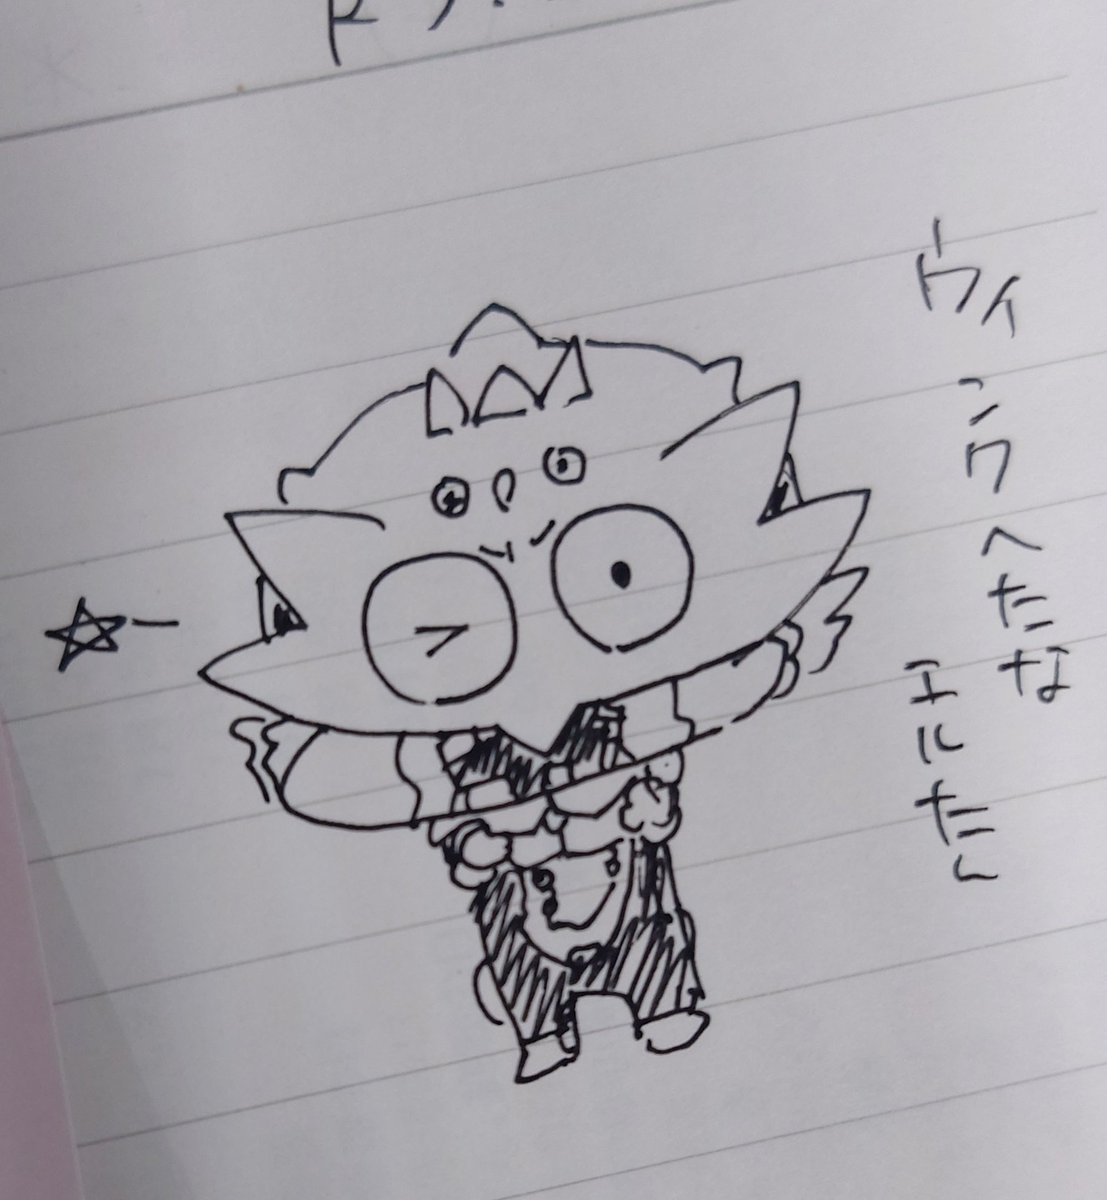 ウインクへたな
エルたん